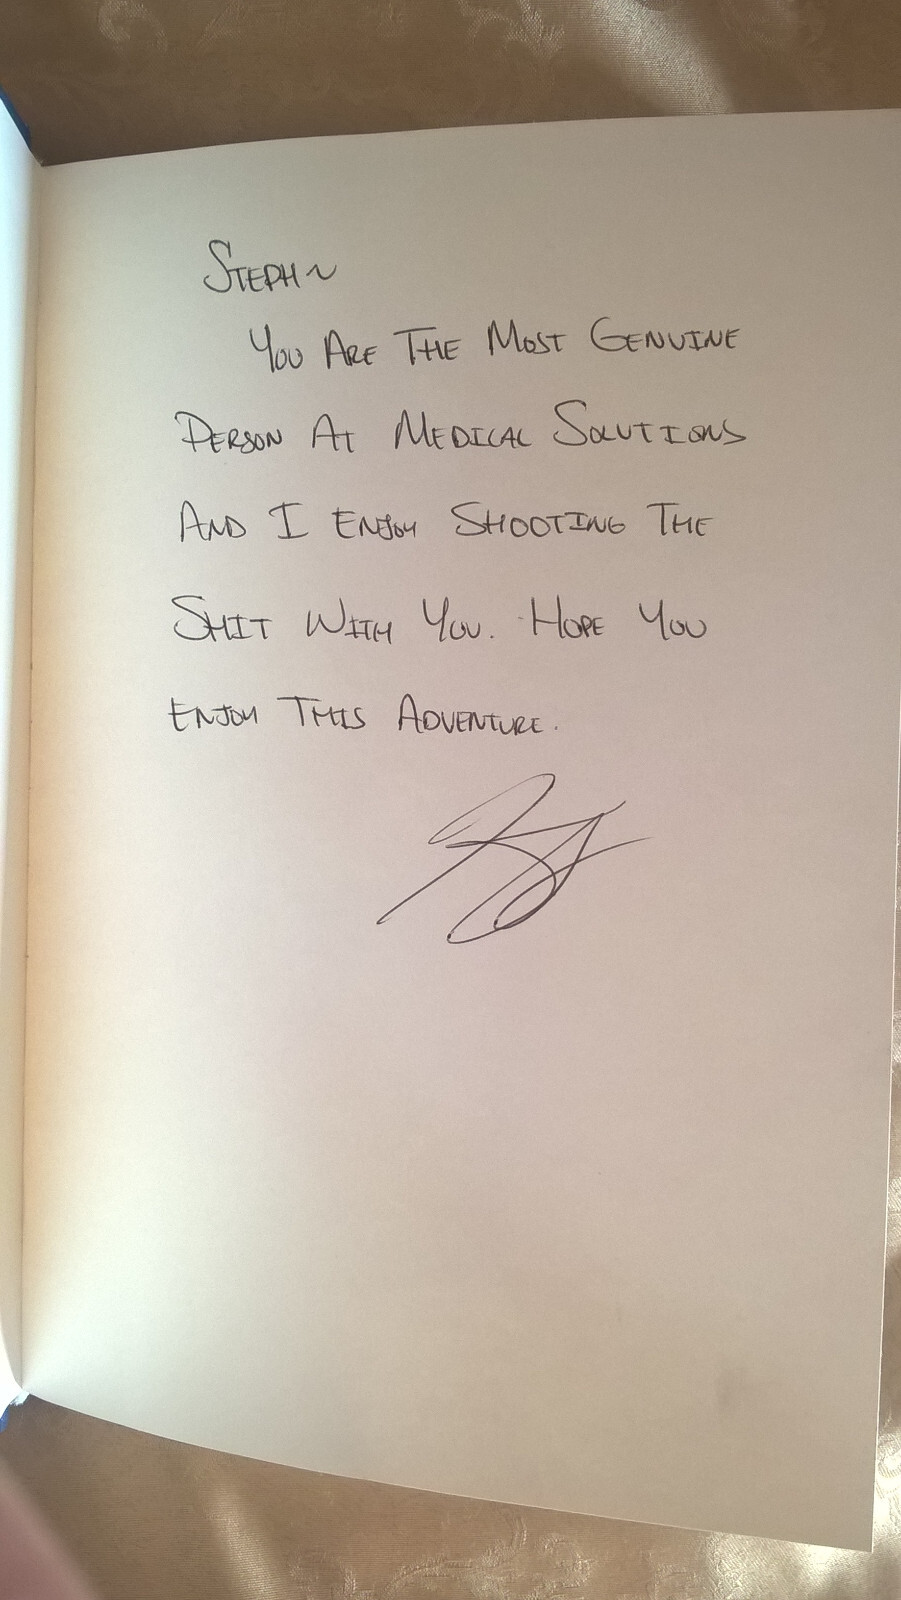 STEPH ~
YOU ARE THE MOST GENUINE
PERSON AT MEDICAL SOLUTIONS
AND I ENJOY SHOOTING THE
SHIT WITH YOU. HOPE YOU
ENJOY THIS ADVENTURE.